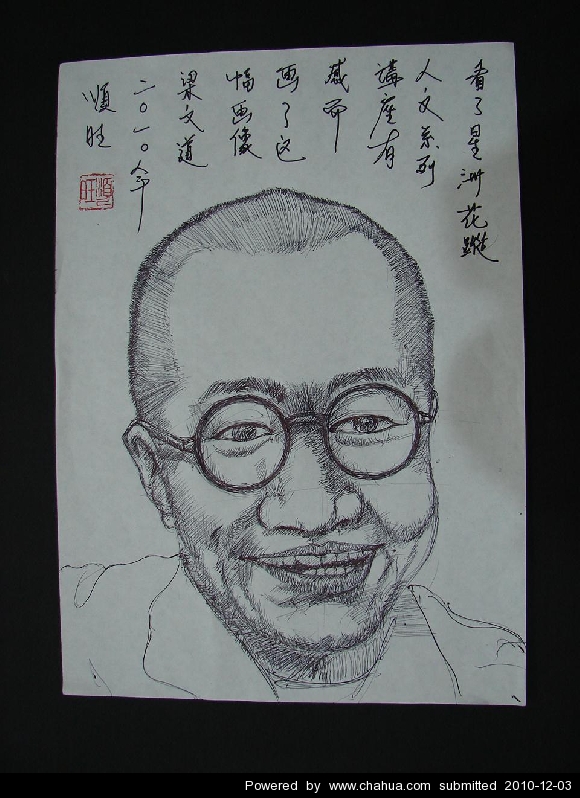 看了星洲花蹤
人文系列
講座有
感而
画了这
幅画像
梁文道
二〇一〇年
順旺
順旺
Powered by www.chahua.com submitted 2010-12-03